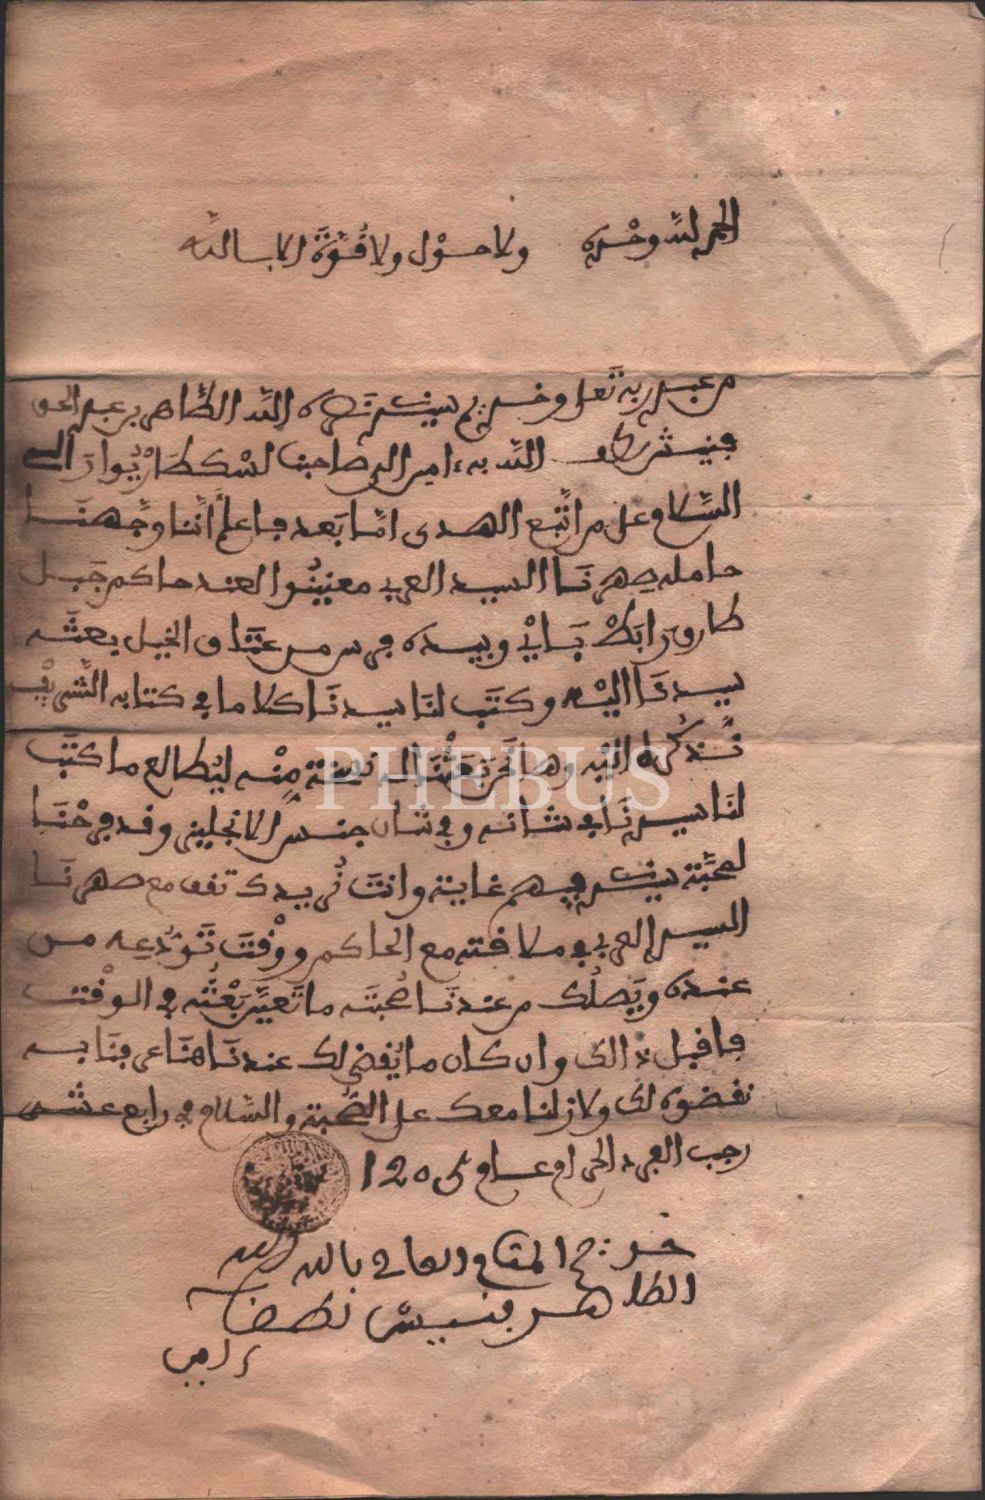 الحمد لله وحده ولا حول ولا قوة الا بالله
من عبد ربه تعلى وخديم سيده نصره الله الطاهر بن عبد الحق
فنيش الله به ءامين الى صاحبنا
السلام على من اتبع الهدى امّا بَعد فاعلم أننا وجّهنَا
حامله صِهرنَا السيد العربي معنينُوا لعند حاكم جَبل
طارق وبيده فرس من عتَاق الخيل بعثَه
سيدنَا اليْه وكتَب لنَا سيدنَا كلاما في كتابه الشريف
وها نحن بَعثْنَا لك نسخة مِنْه لتُطالع ما كتَب
لنَا سيدنَا في شانه وفي شان جنس الانجليز وقد فرحْنَا
لمحبَّة سيدنا فيهم غاية وانتَ نُريدك تقف مع صهرنَا
السيد العربي في ملاقته مع الحاكم ووقْت تَوَدُّعِه من
عنده ويَصلُك من عندنَا صُحبتَه ما تَعيَّن بَعْثُه في الوقْت
فاقبل ذالك وان كان ما يُقضى لك عندنَا هنَا عرفنَا به
نقضوه لك ولا زلنا معك على المحبّة والسّلام في رابع عشر
رجب الفرد الحرام عام 1205
خديم المقام العالي بالله
الطاهر فنيش لطف الله
به ءامين
PHEBUS